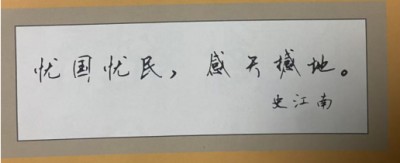 忧国忧民，感天撼地。
史江南